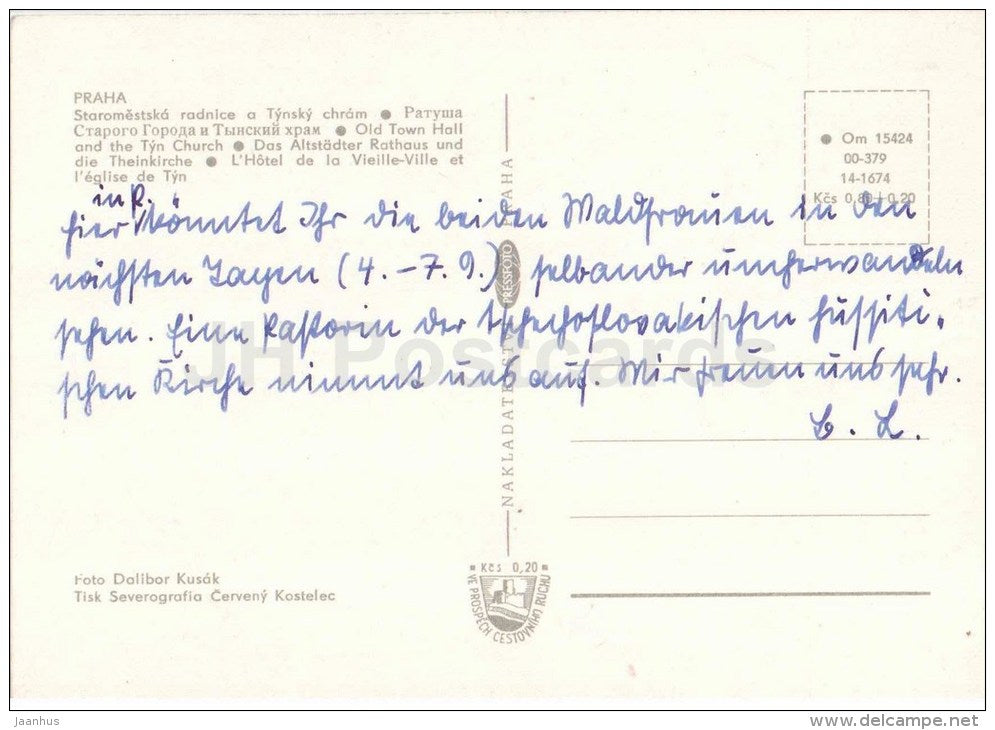 PRAHA
Staroměstská radnice a Týnský chrám ● Ратуша
Старого Города и Тынский храм ● Old Town Hall
and the Týn Church ● Das Altstädter Rathaus und
die Theinkirche ● L'Hôtel de la Vieille-Ville et
l'église de Týn
● Om 15424
00-379
14-1674
Kčs 0,80 + 0,20
in P.
Hier könntet Ihr die beiden Waldfrauen in den
nächsten Tagen (4.-7.9.) selbander umherwandeln
sehen. Eine Pastorin der tschechoslovakischen hussiti-
schen Kirche nimmt uns auf. Wir freuen uns sehr.
L.
NAKLADATELSTVÍ PRESSFOTO PRAHA
Foto Dalibor Kusák
Tisk Severografia Červený Kostelec
● Kčs 0,20 ●
VE PROSPĚCH CESTOVNÍHO RUCHU
JH Postcards
Jaanhus
www.delcampe.net